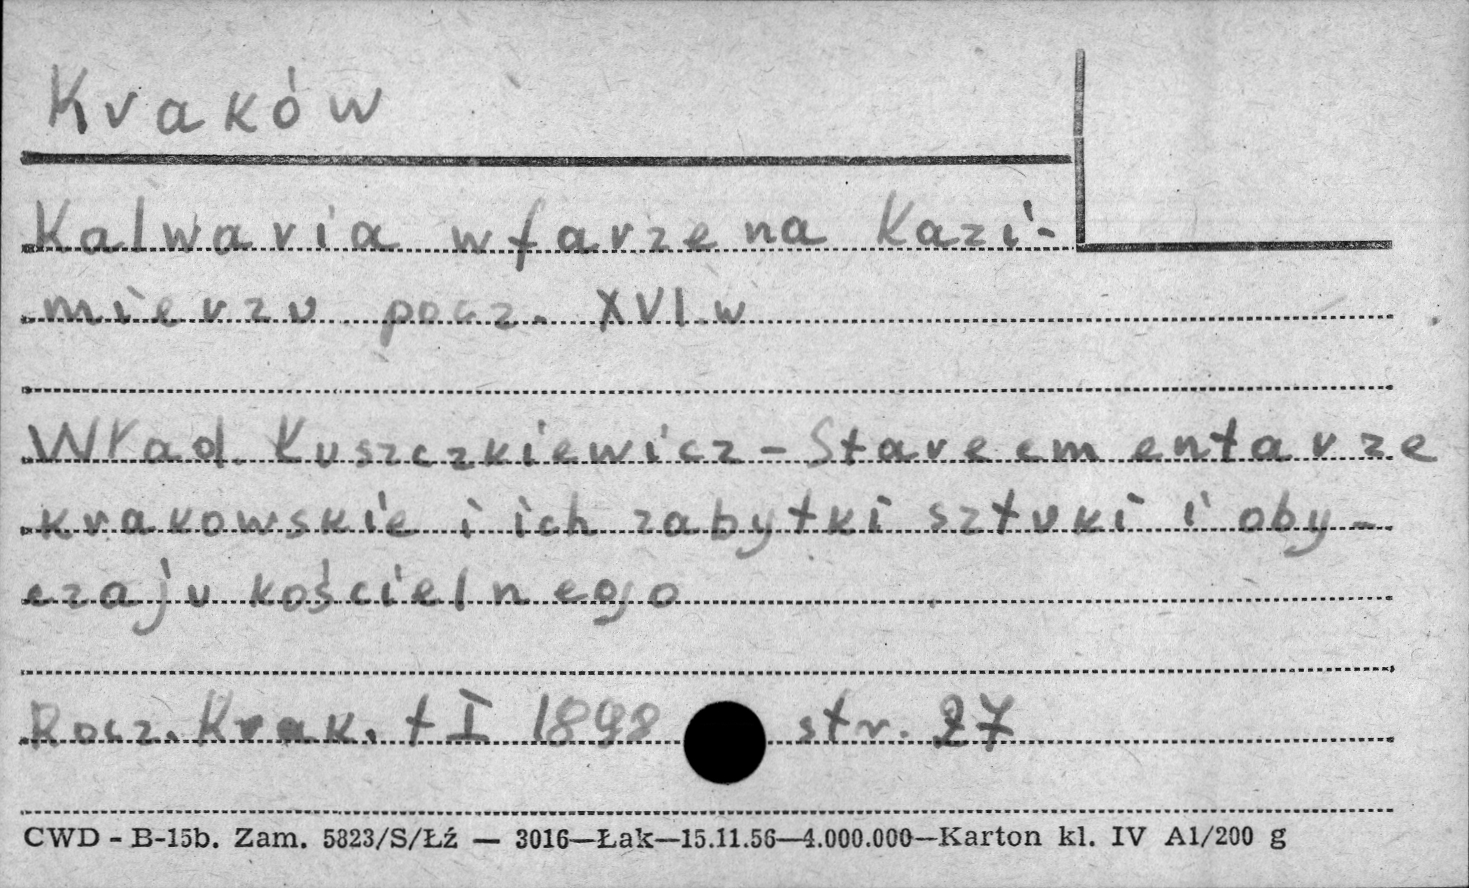 Kraków
Kalwaria w farze na Kazi-
mierzu pocz. XVI.w
Wład. Łuszczkiewicz - Stare cmentarze
krakowskie i ich zabytki sztuki i oby-
czaju kościelnego
Rocz. Krak. t I 1898 str. 27
CWD - B-15b. Zam. 5823/S/Łź — 3016—Łak—15.11.56—4.000.000—Karton kl. IV A1/200 g